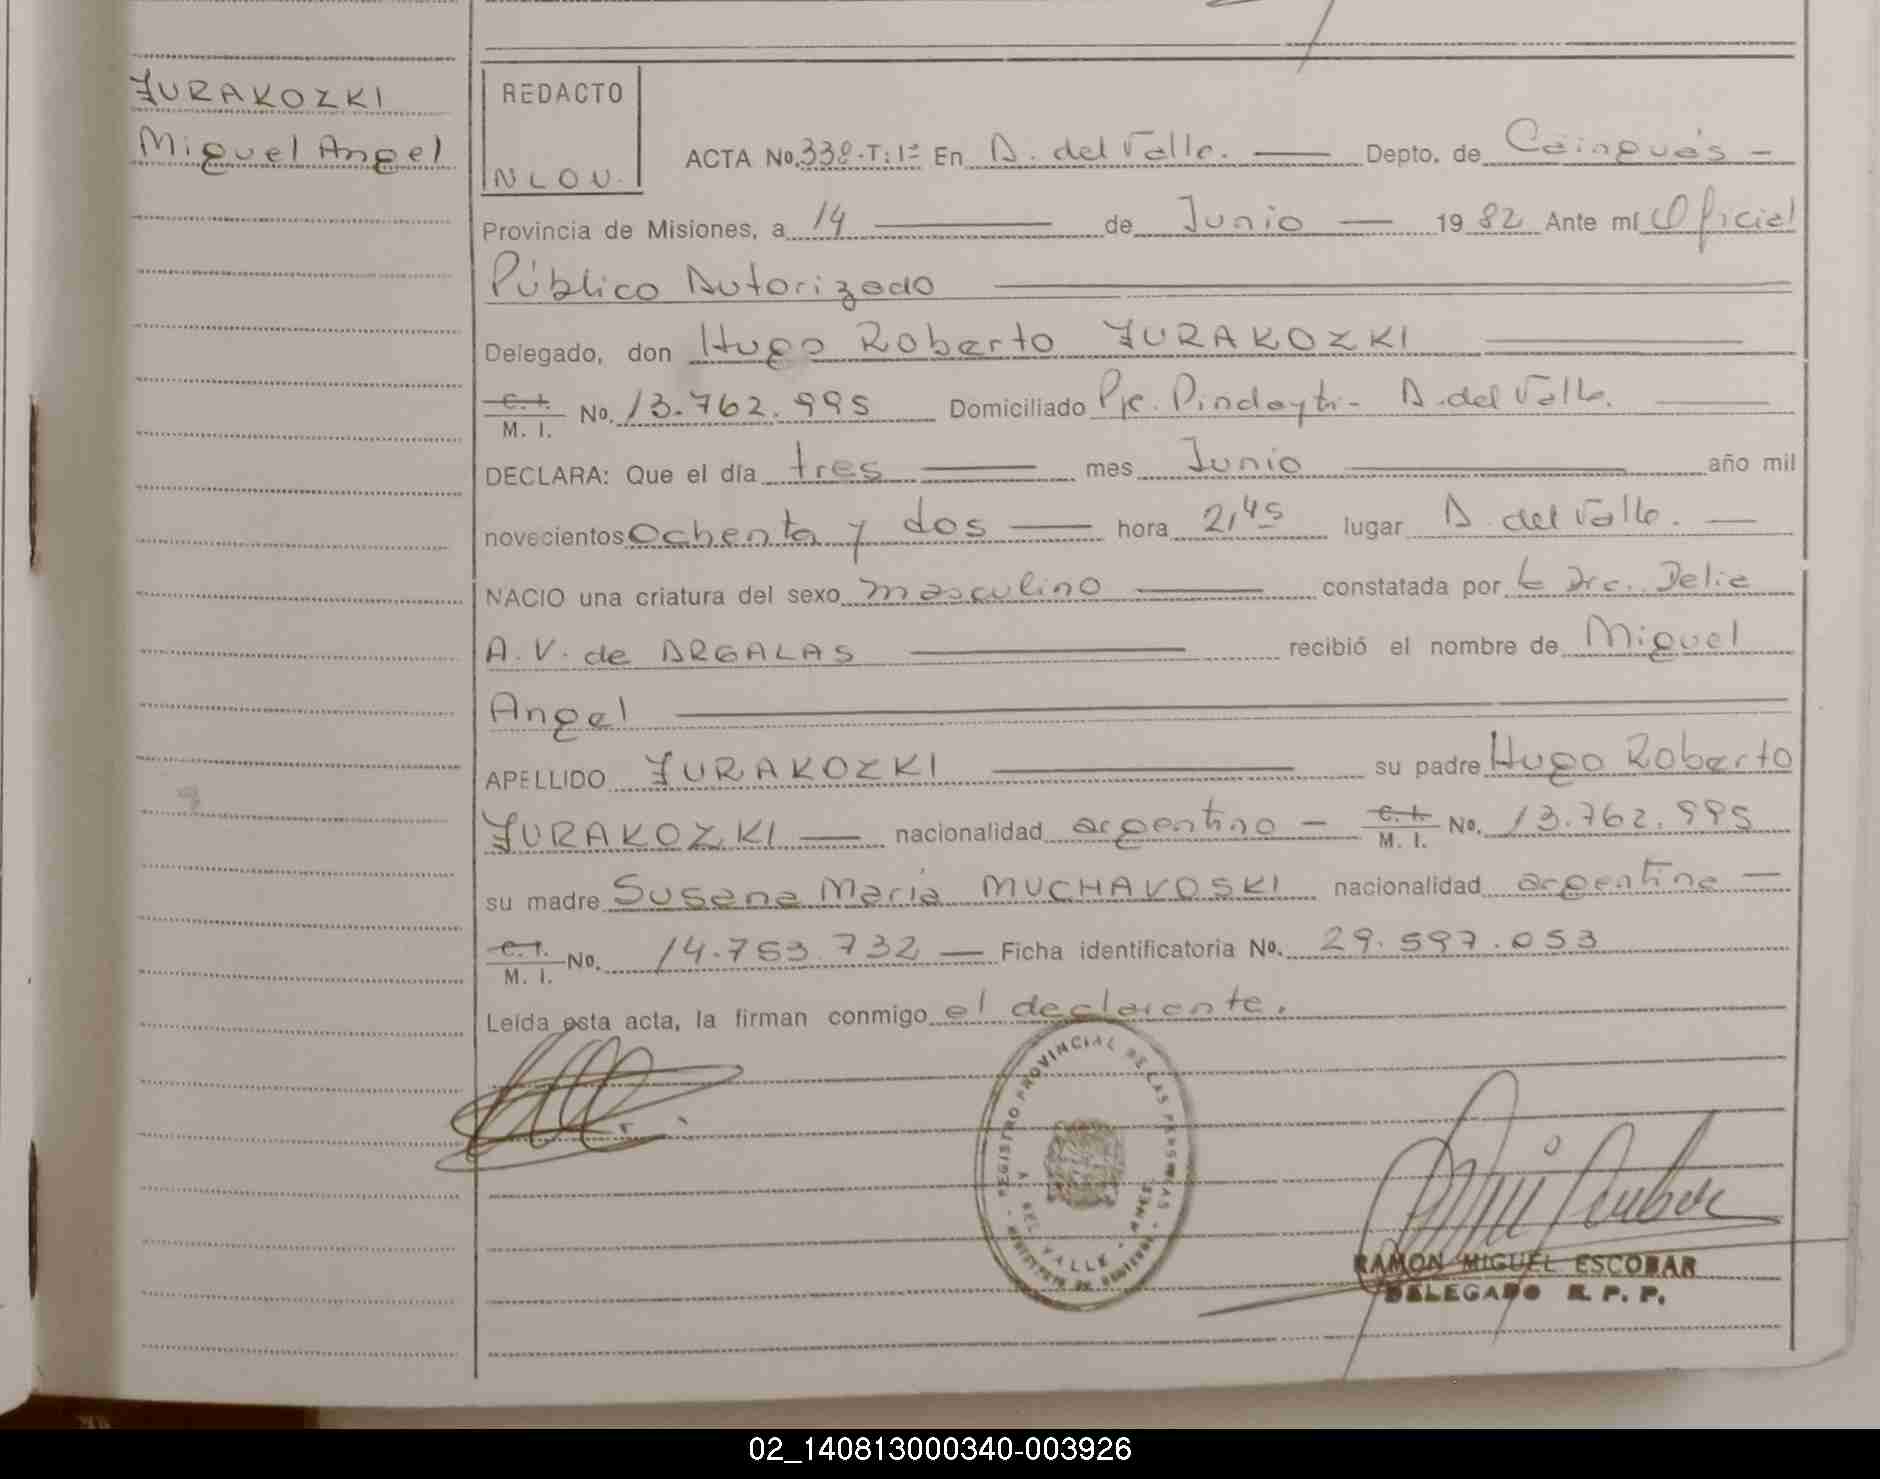 ZURAKOZKI
Miguel Angel
REDACTO
NLOV.
ACTA No. 338-T:1º En A. del Valle. Depto. de Cainguás
Provincia de Misiones, a 14 de Junio 1982 Ante mí Oficial
Público Autorizado
Delegado, don Hugo Roberto ZURAKOZKI
C. I. M. I. No. 13.762.995 Domiciliado Pje. Pindayti - A. del Valle.
DECLARA: Que el día tres mes Junio año mil
novecientos ochenta y dos hora 2,45 lugar A. del Valle.
NACIO una criatura del sexo masculino constatada por la Dra. Delia
A. V. de ARGALAS recibió el nombre de Miguel
Angel
APELLIDO ZURAKOZKI su padre Hugo Roberto
ZURAKOZKI nacionalidad argentino C. I. M. I. No. 13.762.995
su madre Susana María MUCHAVOSKI nacionalidad argentina
C. I. M. I. No. 14.753.732 Ficha identificatoria No. 29.597.053
Leída esta acta, la firman conmigo el declarante.
REGISTRO PROVINCIAL DE LAS PERSONAS
DEL VALLE
RAMON MIGUEL ESCOBAR
DELEGADO R. P. P.
02_140813000340-003926